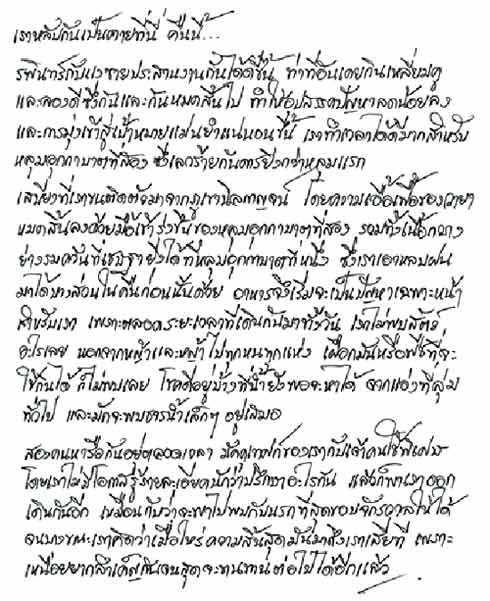 เราหลับกันเป็นตายที่นี่ คืนนี้...
รพินทร์กับแงซายประสานงานกันได้ดีขึ้น ท่าทีอันเคยกินเหลี่ยมคู
และลองดีซึ่งกันและกันหมดสิ้นไป ทำให้อุปสรรคปัญหาลดน้อยลง
และการมุ่งเข้าสู่เป้าหมายแม่นยำแน่นอนขึ้น เราทำเวลาได้ดีมากสำหรับ
หลุมอุกกาบาตที่สอง ซึ่งเลวร้ายกันดารยิ่งกว่าหลุมแรก
เสบียงที่เราขนติดตัวมาจากภูเขานิลกาญจน์ โดยความเอื้อเฟื้อของวายา
หมดสิ้นลงด้วยมื้อเช้ารุ่งขึ้นของหลุมอุกกาบาตที่สอง รวมทั้งเนื้อกวาง
ย่างรมควันที่เชษฐายิงได้ที่หลุมอุกกาบาตที่หนึ่ง ซึ่งเราเอาหลบฝน
มาได้บางส่วนในคืนก่อนนั้นด้วย อาหารจึงเริ่มจะเป็นปัญหาเฉพาะหน้า
สำหรับเรา เพราะตลอดระยะเวลาที่เดินกันมาทั้งวัน เราไม่พบสัตว์
อะไรเลย นอกจากหญ้าและหญ้าไปทุกหนทุกแห่ง เผือกมันหรือพืชที่จะ
ใช้กินได้ ก็ไม่พบเลย โชคดีอยู่บ้างที่น้ำยังพอจะหาได้ จากแอ่งที่ลุ่ม
ทั่วไป และมักจะพบธารน้ำเล็กๆ อยู่เสมอ
สองคนหารือกันอยู่ตลอดเวลา มัคคุเทศก์ของเรากับเจ้าคนใช้พิเศษ
โดยเราไม่มีโอกาสรู้รายละเอียดนักว่าปรึกษาอะไรกัน แล้วก็พาเราออก
เดินกันอีก เหมือนกับว่าจะพาไปพบกับนรกที่สุดขอบจักรวาลให้ได้
จนบางขณะเราคิดว่าเมื่อไหร่ความสิ้นสุดมันมาถึงเราเสียที เพราะ
เหนื่อยยากลำเค็ญกันจนสุดจะทนทานต่อไปได้อีกแล้ว